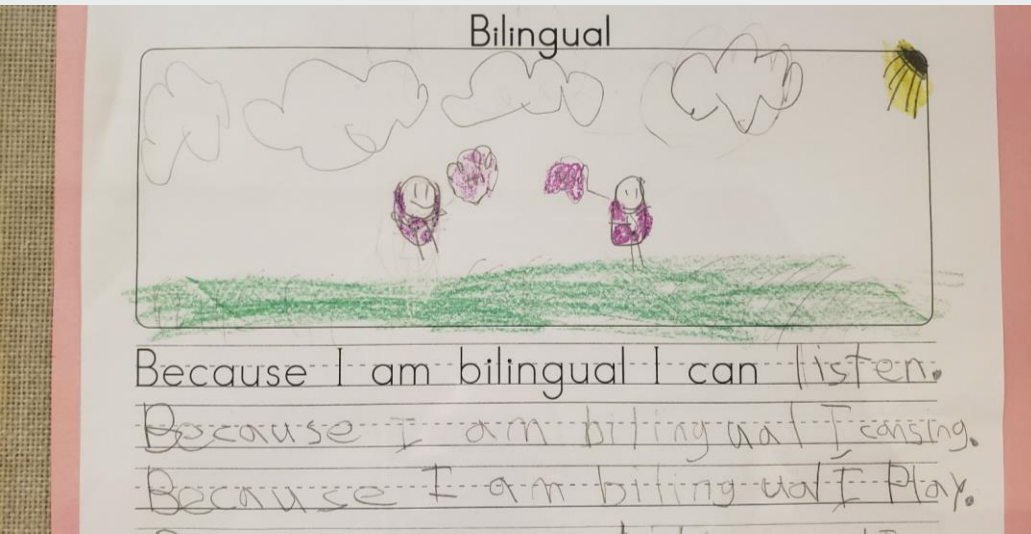 Bilingual
Because I am bilingual I can listen.
Because I am bilingual I can sing.
Because I am bilingual I Play.